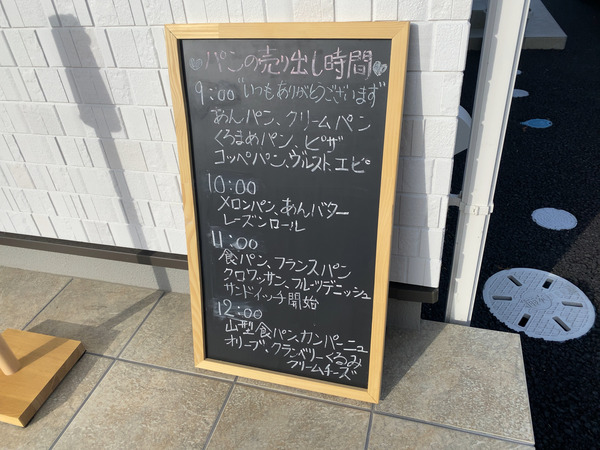 パンの売り出し時間
9:00 "いつもありがとうございます"
あんパン、クリームパン
くろまめパン、ピザ
コッペパン、ヴルスト、エピ
10:00
メロンパン、あんバター
レーズンロール
11:00
食パン、フランスパン
クロワッサン、フルーツデニッシュ
サンドイッチ開始
12:00
山型食パン、カンパーニュ
オリーブ、クランベリーくるみ
クリームチーズ